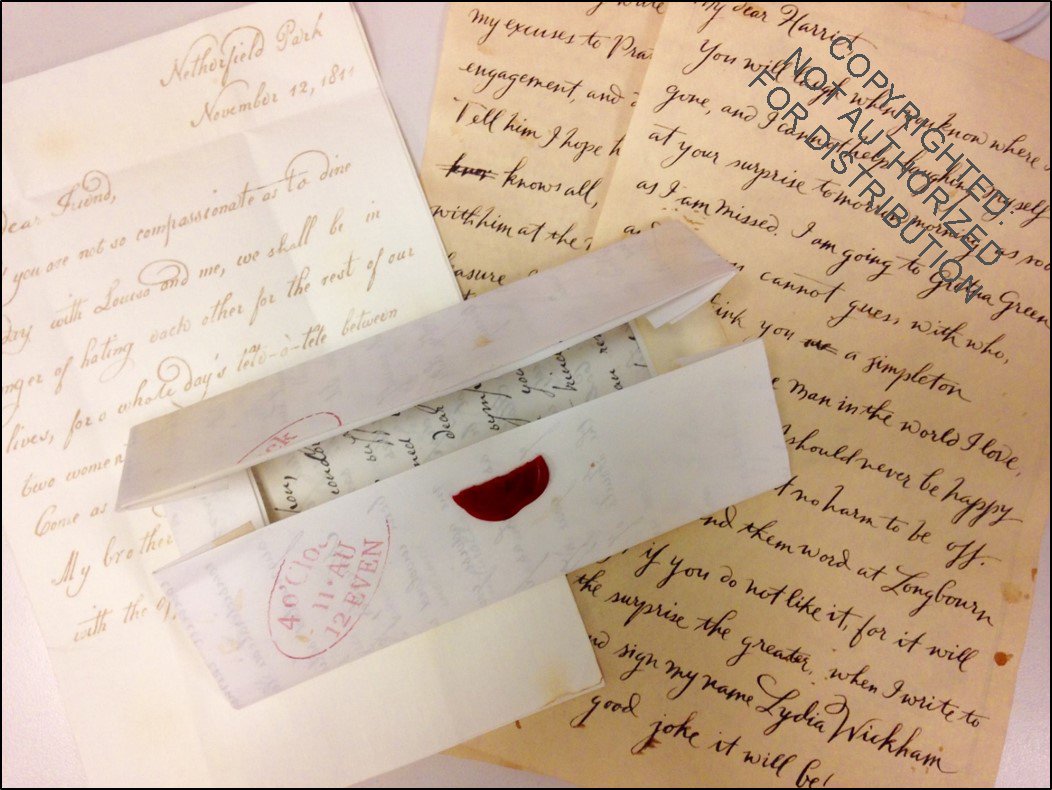 Netherfield Park
November 12, 1811
dear Friend,
you are not so compassionate as to dine
with Louisa and me, we shall be in
of hating each other for the rest of our
lives, for a whole day's tête-à-tête between
two women
Come as
My brother
with the
my excuses to
engagement, and
Tell him I hope
knows all,
with him at the
My dear Harriet
You will laugh when you know where
gone, and I cannot help laughing myself
at your surprise tomorrow morning, as soon
as I am missed. I am going to Gretna Green
cannot guess with who,
you a simpleton
man in the world I love,
should never be happy
no harm to be off.
them word at Longbourn
if you do not like it, for it will
the surprise the greater, when I write to
sign my name Lydia Wickham
good joke it will be!
dear
you
4 o'Clo
11 · AU
12 EVEN
COPYRIGHTED:
NOT AUTHORIZED
FOR DISTRIBUTION